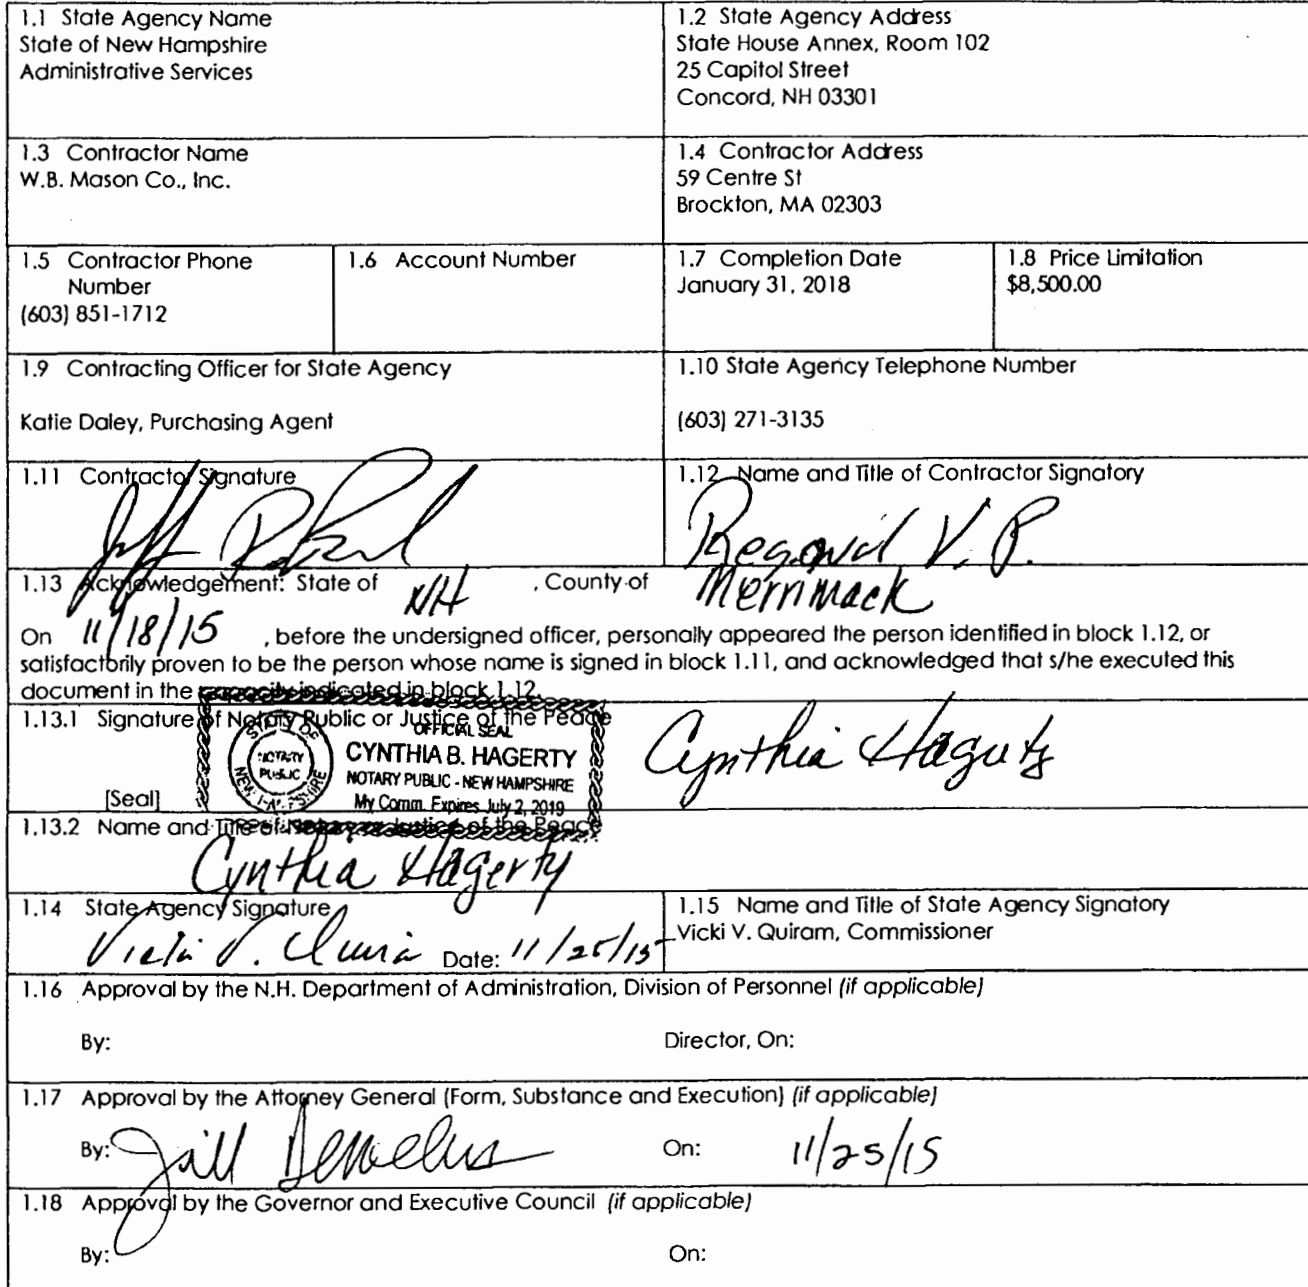 1.1 State Agency Name
State of New Hampshire
Administrative Services
1.2 State Agency Address
State House Annex, Room 102
25 Capitol Street
Concord, NH 03301
1.3 Contractor Name
W.B. Mason Co., Inc.
1.4 Contractor Address
59 Centre St
Brockton, MA 02303
1.5 Contractor Phone
Number
(603) 851-1712
1.6 Account Number
1.7 Completion Date
January 31, 2018
1.8 Price Limitation
$8,500.00
1.9 Contracting Officer for State Agency
Katie Daley, Purchasing Agent
1.10 State Agency Telephone Number
(603) 271-3135
1.11 Contractor Signature
Jeff
1.12 Name and Title of Contractor Signatory
Regional V. P.
1.13 Acknowledgement: State of NH , County of Merrimack
On 11/18/15 , before the undersigned officer, personally appeared the person identified in block 1.12, or
satisfactorily proven to be the person whose name is signed in block 1.11, and acknowledged that s/he executed this
document in the capacity indicated in block 1.12.
1.13.1 Signature of Notary Public or Justice of the Peace
OFFICIAL SEAL
CYNTHIA B. HAGERTY
NOTARY PUBLIC - NEW HAMPSHIRE
My Comm. Expires July 2, 2019
STATE OF
NOTARY
PUBLIC
NEW HAMPSHIRE
Cynthia Hagerty
[Seal]
1.13.2 Name and Title of Notary or Justice of the Peace
Cynthia Hagerty
1.14 State Agency Signature
Vicki V. Quiram Date: 11/25/15
1.15 Name and Title of State Agency Signatory
Vicki V. Quiram, Commissioner
1.16 Approval by the N.H. Department of Administration, Division of Personnel (if applicable)
By: Director, On:
1.17 Approval by the Attorney General (Form, Substance and Execution) (if applicable)
By: Jill On: 11/25/15
1.18 Approval by the Governor and Executive Council (if applicable)
By: On: